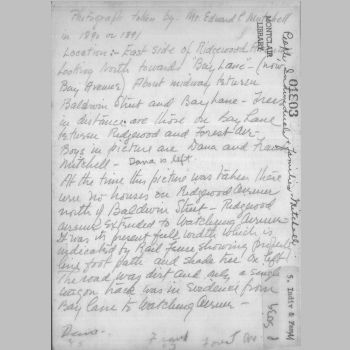 Photograph taken by Mr. Edward P. Mitchell
in 1890 or 1891
Location: East side of Ridgewood
Looking North toward "Bay Lane" (now
Bay Avenue) About midway between
Baldwin Street and Bay Lane - Trees
in distance are those on Bay Lane
between Ridgewood and Forest Ave-
Boys in picture are Dana and
Mitchell - Dana is left
At the time this picture was taken there
were no houses on Ridgewood Avenue
north of Baldwin Street - Ridgewood
avenue extended to Watchung Avenue
It was its present full width which is
indicated by Rail fence showing property
line foot path and shade tree on left
The road was dirt and only a single
wagon track was in evidence from
Bay Lane to Watchung Avenue -
Dana -
MONTCLAIR
LIBRARY
01E03
People, Individuals & Families - Mitchell